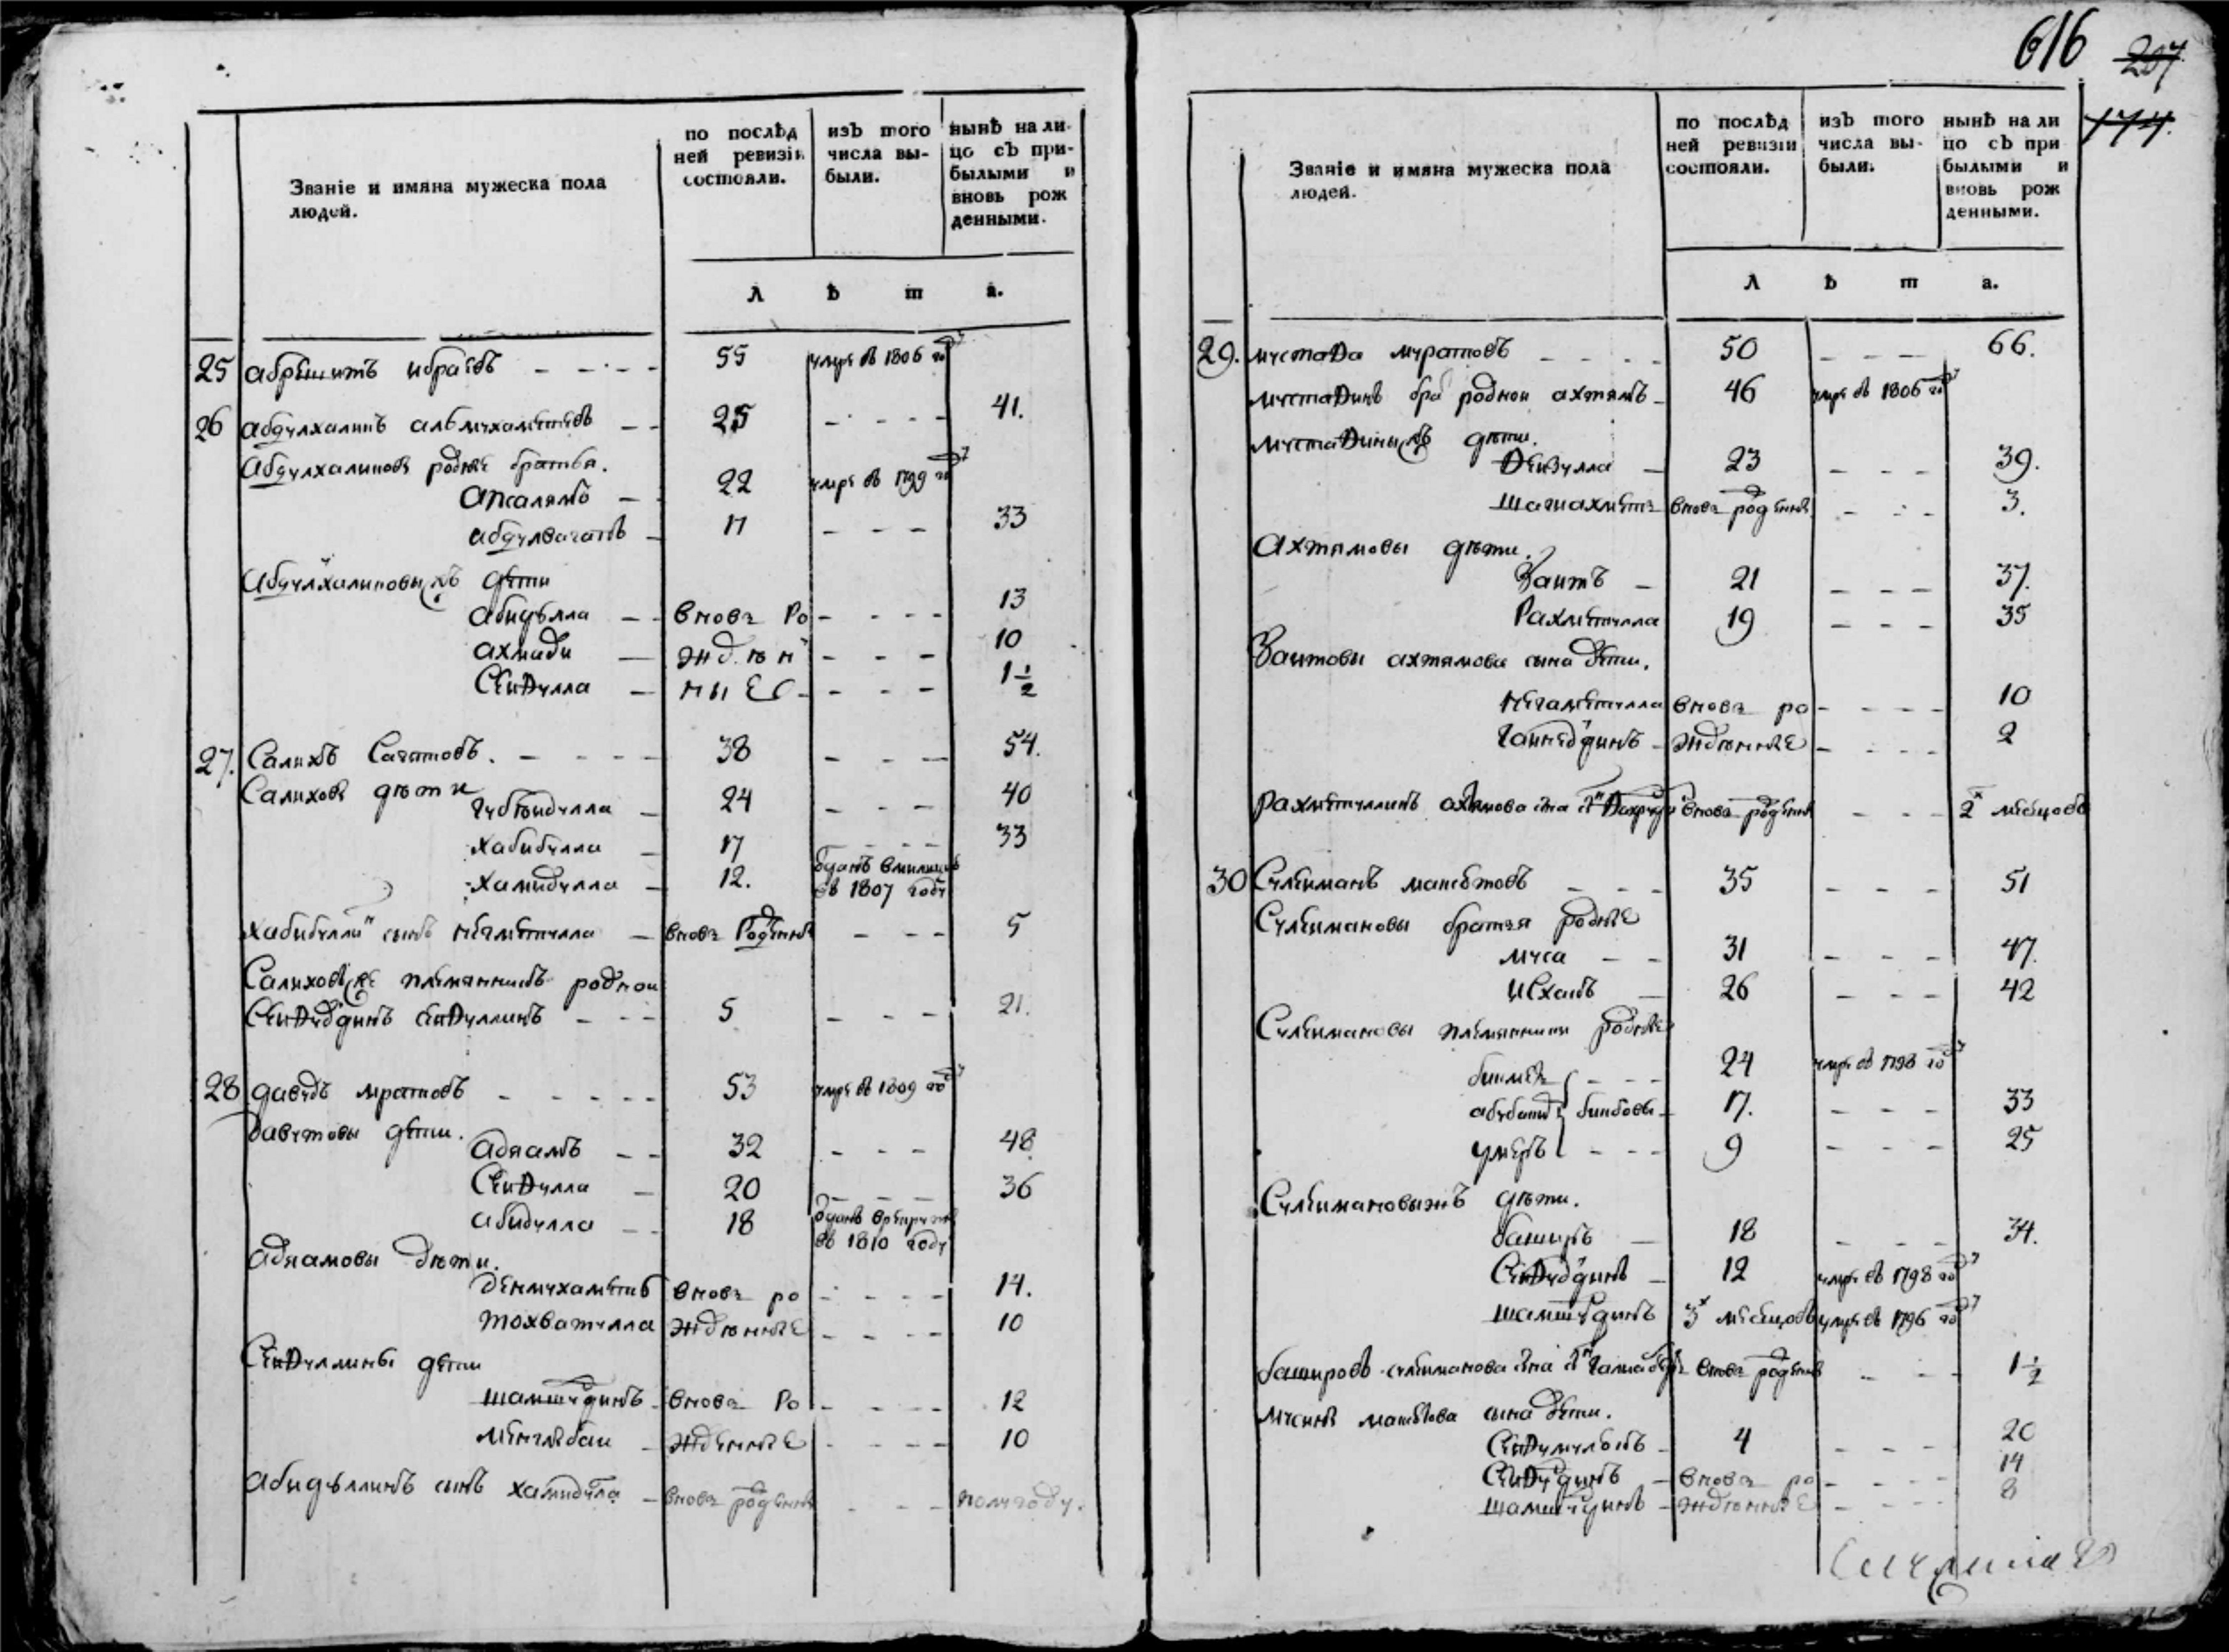 616
207
174.
Званіе и имяна мужеска пола
людей.
по послѣд
ней ревизіи
состояли.
изЪ того
числа вы-
были.
нынѣ на ли-
цо сЪ при-
былыми и
вновь рож
денными.
л ѣ т а.
25 абрешитъ ибраевъ 55 умре въ 1806 го
26 абдулхалинъ альмухаметевъ 25 41.
абдулхалиновы родные братья.
22 умре въ 1799 го
абдулвагапъ 17 33
абдулхалиновыхъ дети
абидулла вновь ро 13
ахмади жд. ен 10
сеифулла ные 1 1/2
27. Салихъ Сагитовъ. 38 54.
Салиховы дети
губеидулла 24 40
хабибулла 17 33
хамидулла 12. отданъ в милицию
въ 1807 году
хабибуллин сынъ нигаметулла вновь рожденны 5
Салиховъ же племянникъ роднои
Сеифудинъ сеифуллинъ 5 21.
28 давудъ муратовъ 53 умре въ 1809 го
давутовы дети.
адгамъ 32 48
Сеифулла 20 36
абидулла 18 отданъ в рекруты
въ 1810 году
адгамовы дети.
денмухаметь вновь ро 14.
тохватулла жденные 10
Сеифуллины дети
шамшудинъ вновь ро 12
менглибаи жденные 10
абидуллинъ сынъ хамидула вновь рожденны полугоду.
Званіе и имяна мужеска пола
людей.
по послѣд
ней ревизіи
состояли.
изЪ того
числа вы-
были.
нынѣ на ли
цо сЪ при
былыми и
вновь рож
денными.
л ѣ т а.
29. мустафа муратовъ 50 66.
мустафинъ бра роднои ахтямъ 46 умре въ 1806 го
мустафиныхъ дети.
феизулла 23 39.
шагиахметъ вновь рожденны 3.
Ахтямовы дети.
Заитъ 21 37.
Рахметулла 19 35
Заитовы ахтямова сына дети.
нигаметулла вновь ро 10
гаинедфинъ жденные 2
рахметуллинъ ахтямова сна снъ вновь рожденны 2х месецовъ
30 Сулеиманъ 35 51
Сулеимановы братья родные
муса 31 47.
исхакъ 26 42
Сулеимановы племянники родные
24 умре въ 1798 го
17. 33
умеръ 9 25
Сулеимановыжъ дети.
баширъ 18 34.
Сеифудинъ 12 умре въ 1798 го
шамшудинъ 3х месецовъ умре въ 1796 го
башировъ сулеиманова сна снъ вновь рожденны 1 1/2
мусины сына дети.
4 20
Сеифудинъ вновь ро 14
шамшудинъ жденные 8